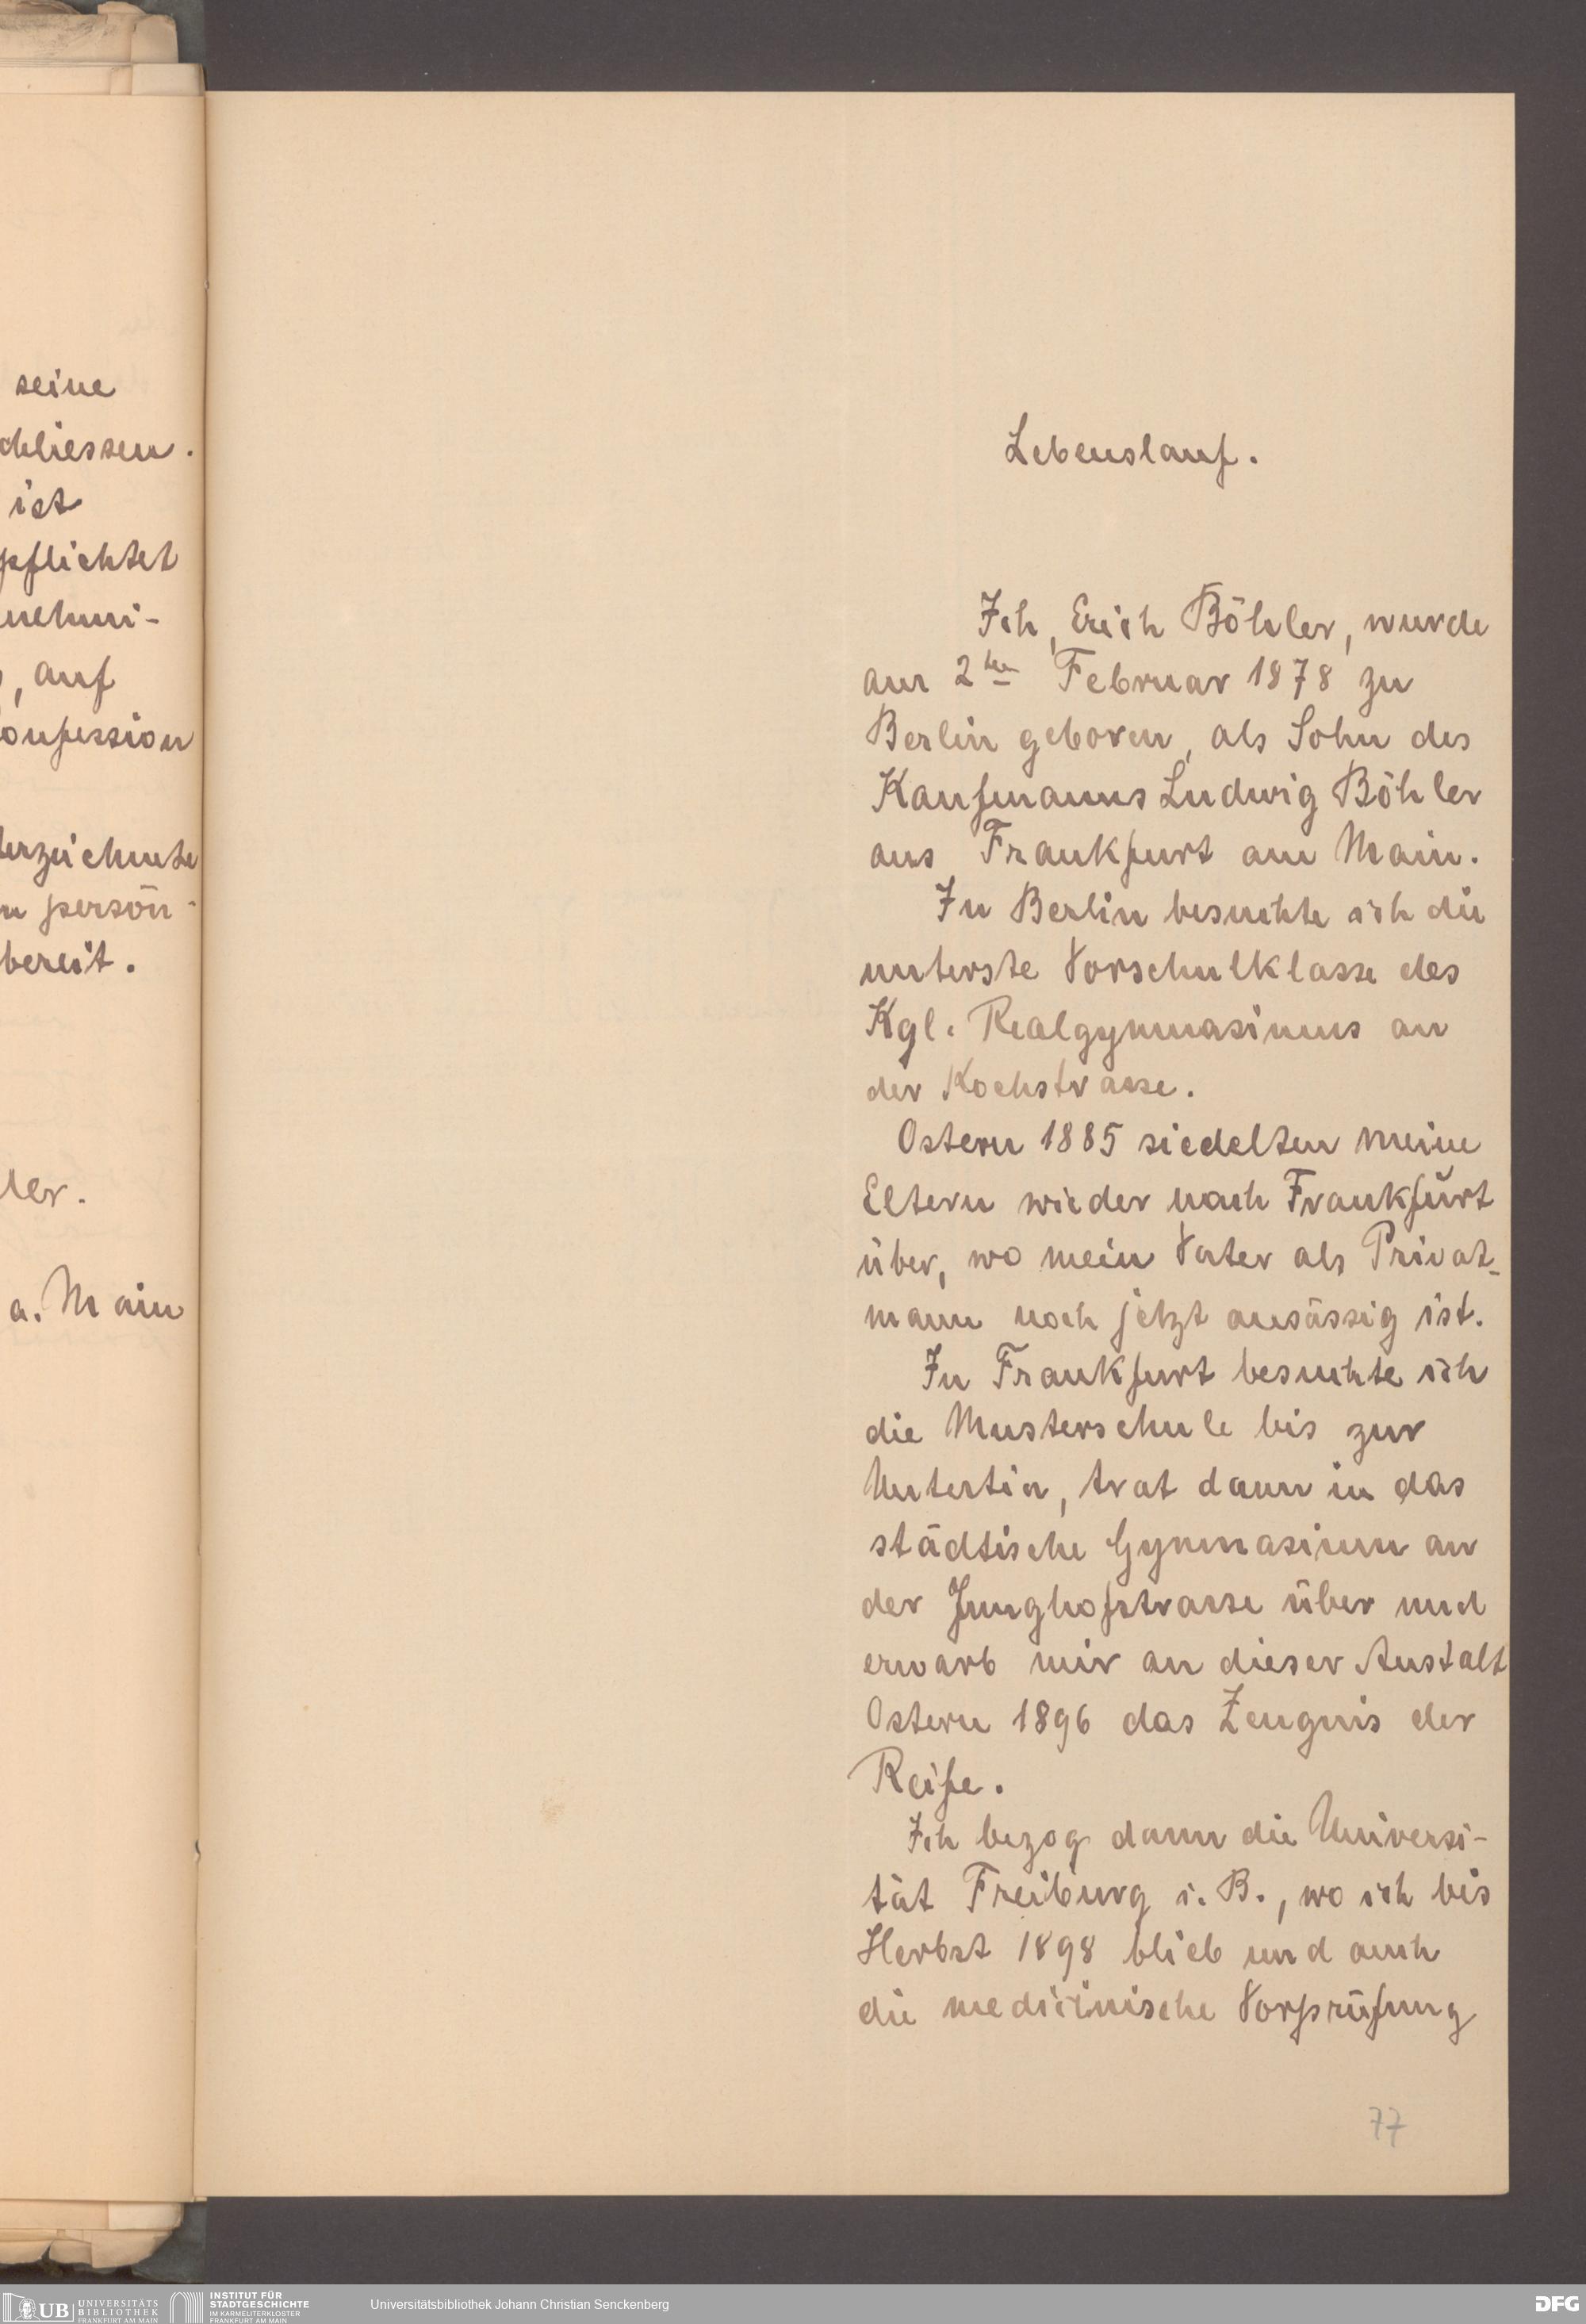 seine
chliessen.
ist
pflichtet
nehmi-
, auf
onfession
terzeichnete
n persön-
bereit.
ler.
a. Main
Lebenslauf.
Ich, Erich Böhler, wurde
am 2ten Februar 1878 zu
Berlin geboren, als Sohn des
Kaufmanns Ludwig Böhler
aus Frankfurt am Main.
In Berlin besuchte ich die
unterste Vorschulklasse des
Kgl. Realgymnasiums an
der Kochstrasse.
Ostern 1885 siedelten meine
Eltern wieder nach Frankfurt
über, wo mein Vater als Privat-
mann noch jetzt ansässig ist.
In Frankfurt besuchte ich
die Musterschule bis zur
Untertia, trat dann in das
städtische Gymnasium an
der Junghofstrasse über und
erwarb mir an dieser Anstalt
Ostern 1896 das Zeugnis der
Reife.
Ich bezog dann die Universi-
tät Freiburg i. B., wo ich bis
Herbst 1898 blieb und auch
die medicinische Vorprüfung
77
UB UNIVERSITÄTS
BIBLIOTHEK
FRANKFURT AM MAIN
INSTITUT FÜR
STADTGESCHICHTE
IM KARMELITERKLOSTER
FRANKFURT AM MAIN
Universitätsbibliothek Johann Christian Senckenberg
DFG